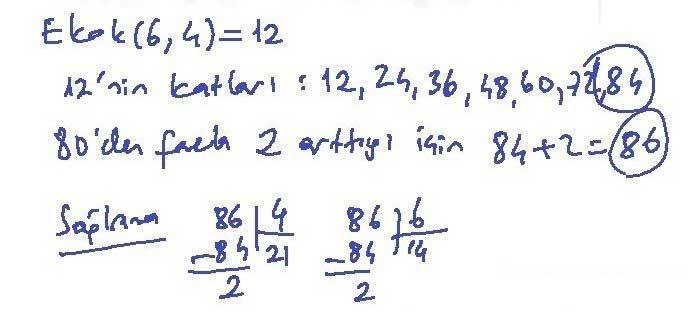 Ekok(6,4)=12
12'nin katları : 12, 24, 36, 48, 60, 72, 84
80'den fazla 2 arttığı için 84+2=86
Sağlama 86 4 86 6
-84 21 -84 14
2 2